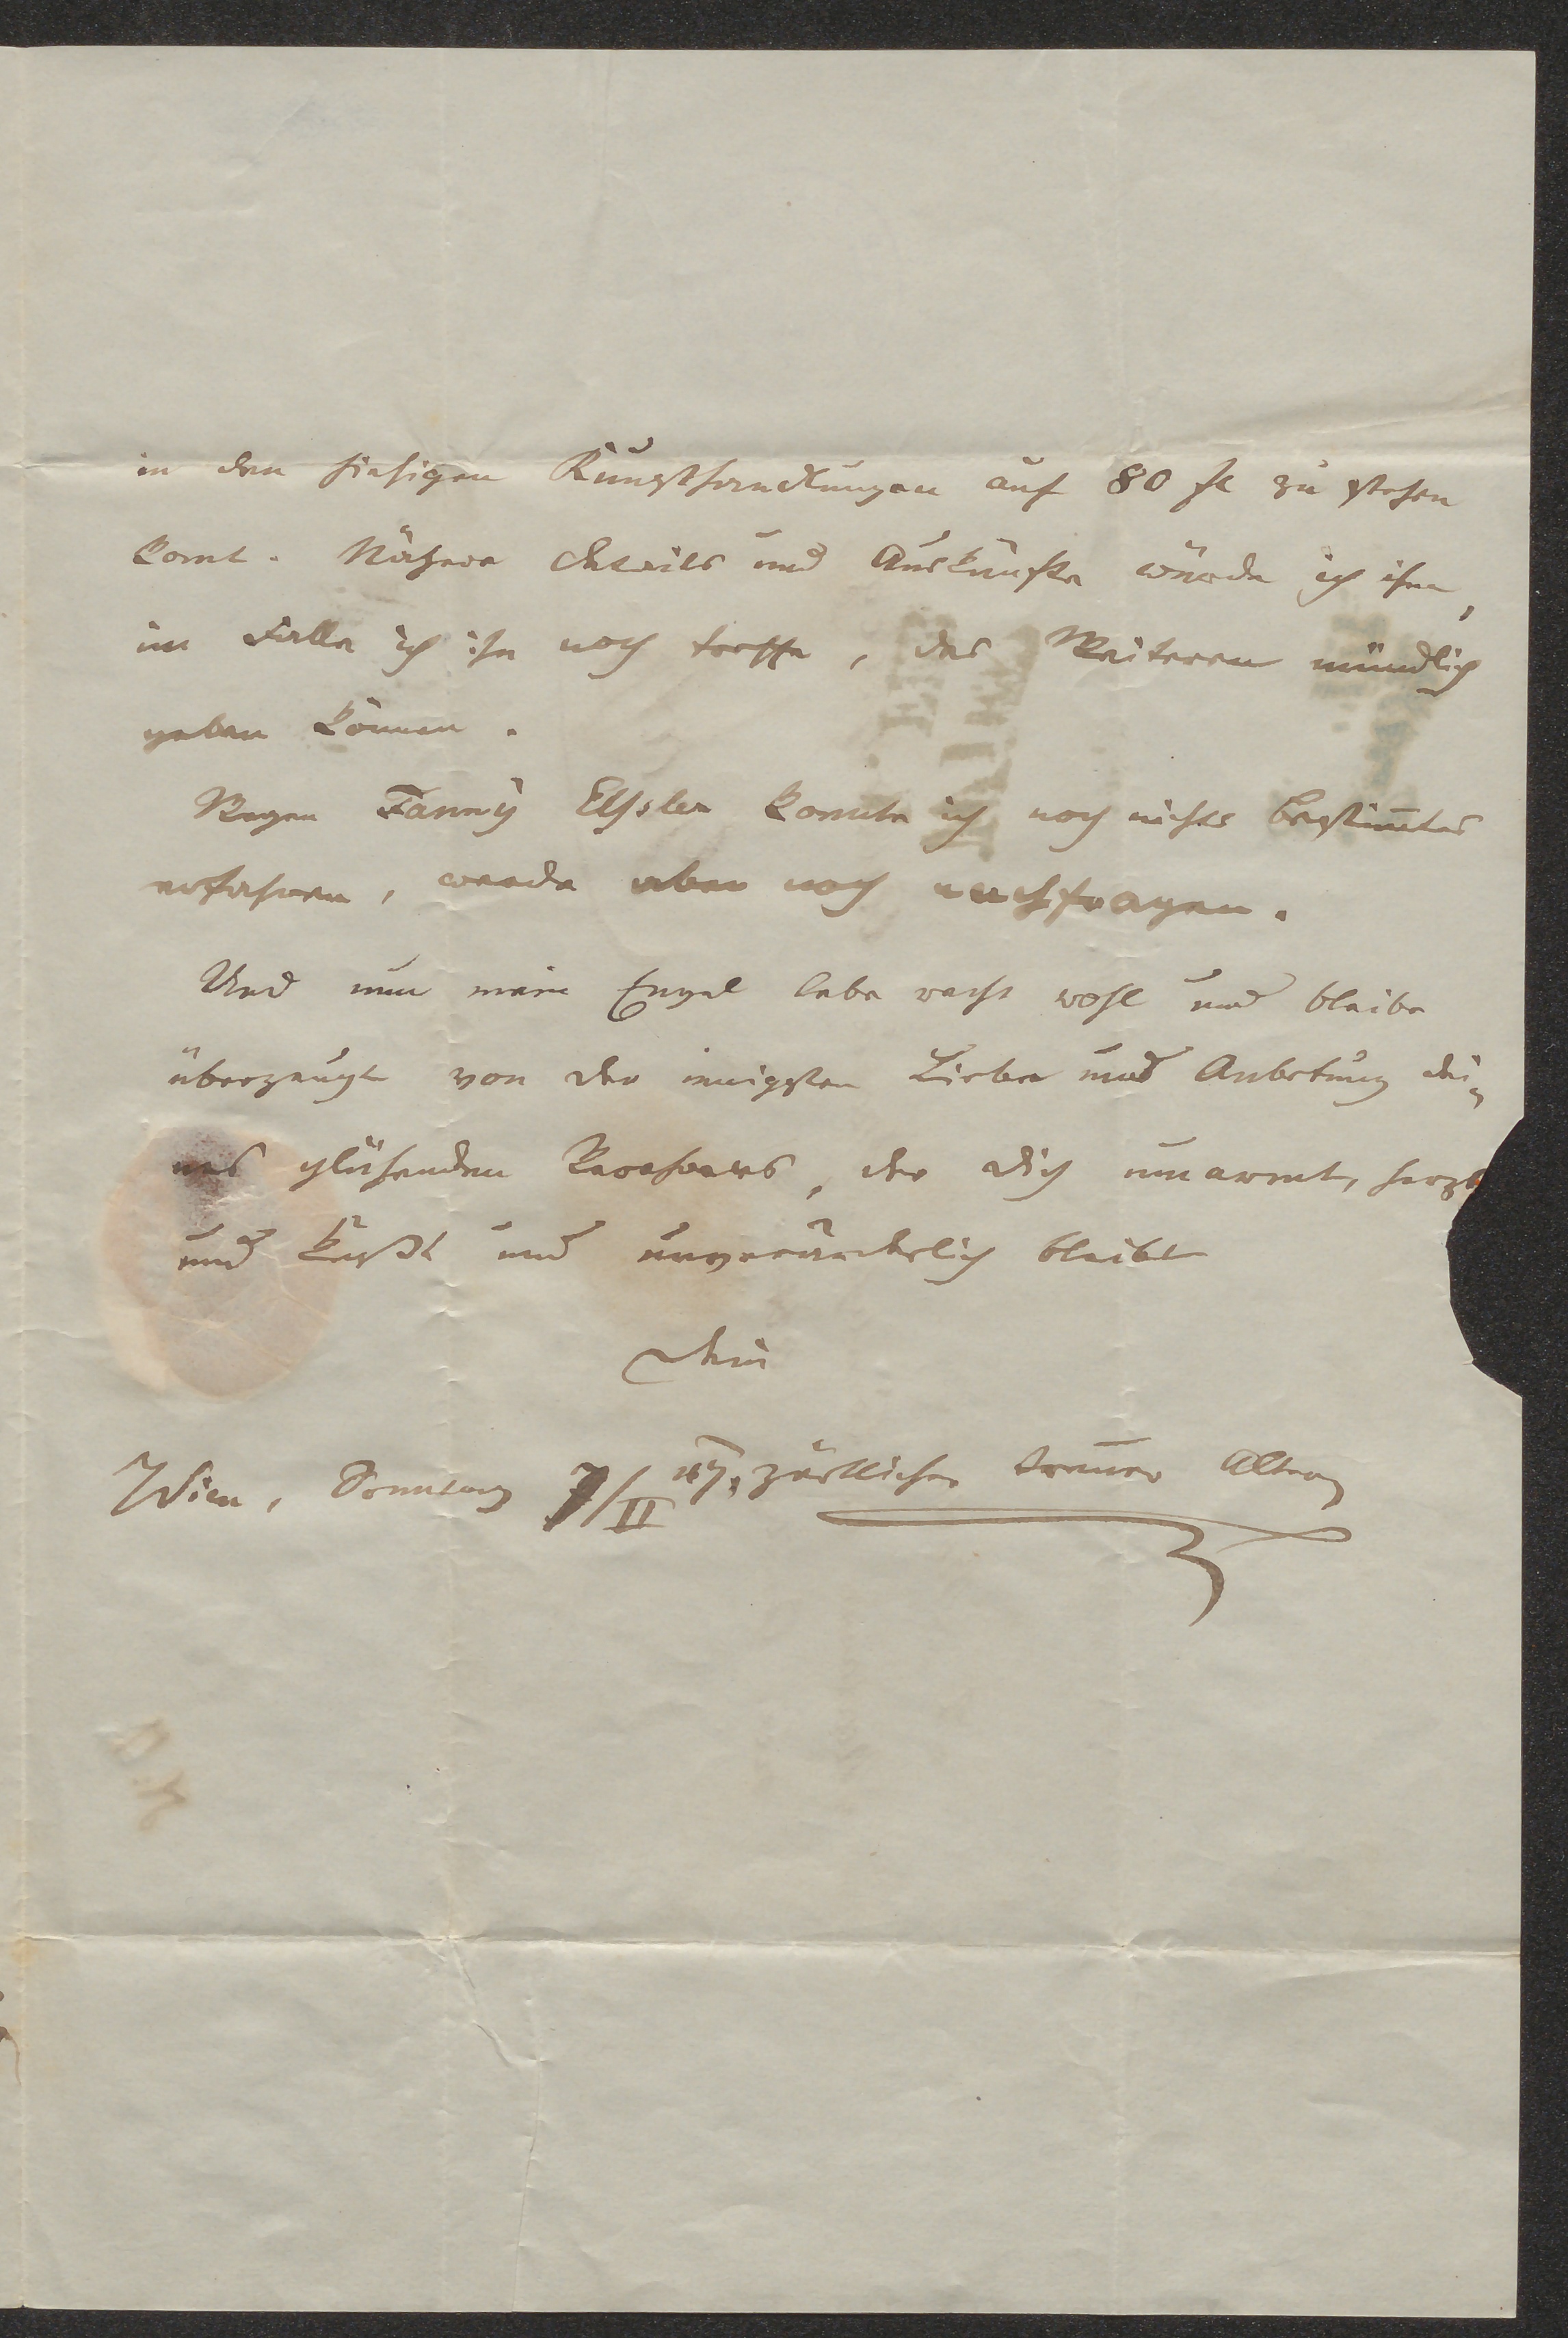 in den hiesigen Kunsthandlungen auf 80 fl zu stehen
komt. Nähere Details und Auskünfte würde ich ihm,
im Falle ich ihn noch treffe, des Weiteren mündlich
geben können.
Wegen Fanny Elssler konnte ich noch nichts bestim̅tes
erfahren, werde aber noch nachfragen.
Und nun mein Engel lebe recht wohl und bleibe
überzeugt von der innigsten Liebe und Anbetung dei¬
nes glühenden Verehrers, der dich umarmt, herzt
und küßt und unveränderlich bleibt
dein
Wien, Sonntag 7/II 47. zärtlicher treuer Alter